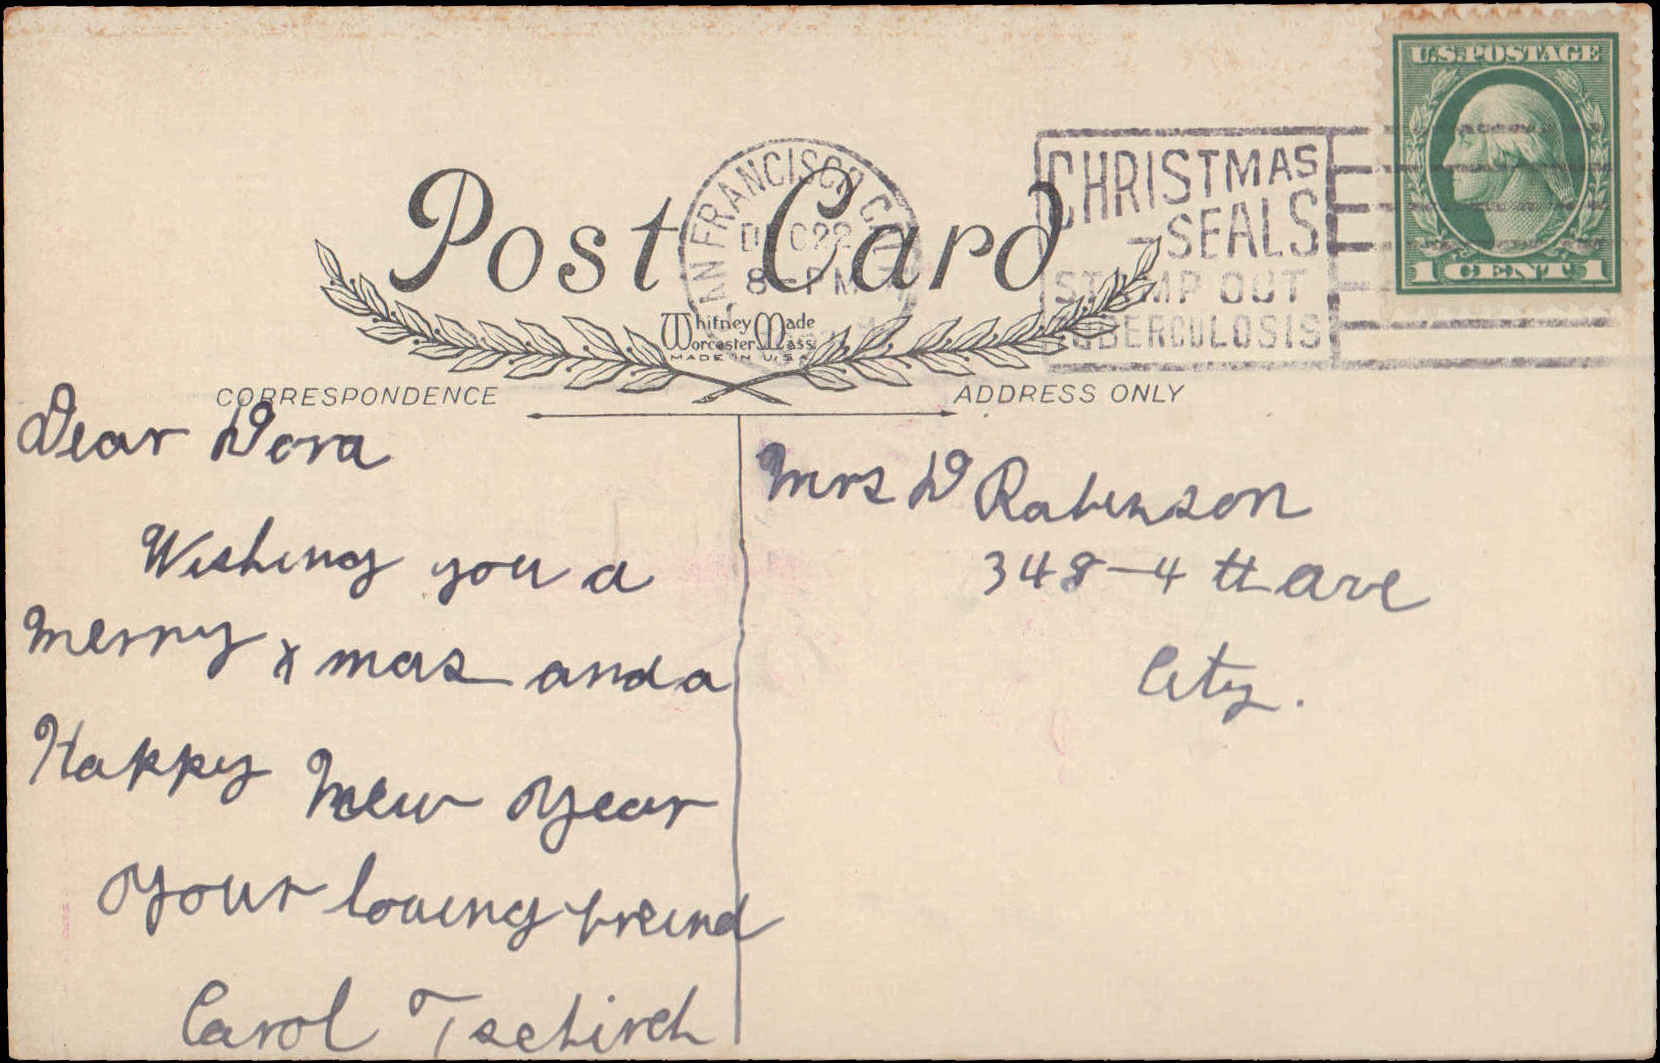 U.S. POSTAGE
1 CENT 1
SAN FRANCISCO, CAL.
DEC 22
8 - PM
CHRISTMAS
SEALS
STAMP OUT
TUBERCULOSIS
Post Card
Whitney Made
Worcester, Mass.
MADE IN U.S.A.
CORRESPONDENCE
ADDRESS ONLY
Dear Dora
Wishing you a
Merry xmas and a
Happy New Year
Your loving freind
Carol Tschirch
Mrs D Robinson
348-4 tt ave
City.